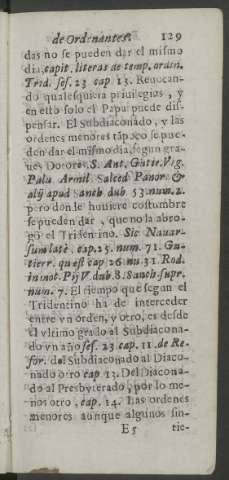 de Ordenantes. 129
das no se pueden dar el mismo
dia, capit. literas de temp. ordin.
Trid. ses. 23 cap 13. Revocan-
do qualesquiera privilegios, y
en esto solo el Papa puede dis-
pensar. El Subdiaconado, y las
ordenes menores tãpoco se pue-
den dar el mismo dia, segun gra-
ves Dotores. S. Ant. Gutir. Vig.
Palu Armil Salced Panor. &
alij apud Sancb dub. 53. num. 2.
pero donde huviere costumbre
se pueden dar, que no la abro-
gò el Tridentino. Sic Navar-
sum latè. cap. 25. num. 71. Gu-
tierr. quæst cap 26 nu 31. Rod.
in mot. Pij V. dub. 8. Sancb. supr.
num. 7. El tiempo que segun el
Tridentino ha de interceder
entre vn orden, y otro, es desde
el vltimo grado al Subdiacona-
do vn año ses. 23 cap. 11. de Re-
for. del Subdiaconado al Diaco-
nado otro cap 13. Del Diacona-
do al Presbyterado, por lo me-
nos otro, cap. 14. Las ordenes
menores aunque algunos sin-
E5 tie-